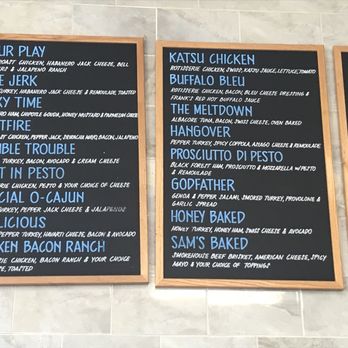 UR PLAY
ROAST CHICKEN, HABANERO JACK CHEESE, BELL
& JALAPENO RANCH
E JERK
TURKEY, HABANERO JACK CHEESE & REMOULADE, TOASTED
KY TIME
HAM, CHIPOTLE GOUDA, HONEY MUSTARD & PARMESAN CHEESE
TFIRE
CHICKEN, PEPPER JACK, BACON, JALAPENO
BLE TROUBLE
TURKEY, BACON, AVOCADO & CREAM CHEESE
T IN PESTO
CHICKEN, PESTO & YOUR CHOICE OF CHEESE
CIAL O-CAJUN
TURKEY, PEPPER JACK CHEESE & JALAPENOS
LICIOUS
PEPPER TURKEY, HAVARTI CHEESE, BACON & AVOCADO
KEN BACON RANCH
CHICKEN, BACON, RANCH & YOUR CHOICE
TOASTED
KATSU CHICKEN
ROTISSERIE CHICKEN, SWISS, KATSU SAUCE, LETTUCE, TOMATO
BUFFALO BLEU
ROTISSERIE CHICKEN, BACON, BLEU CHEESE DRESSING &
FRANK'S RED HOT BUFFALO SAUCE
THE MELTDOWN
ALBACORE TUNA, BACON, SWISS CHEESE, OVEN BAKED
HANGOVER
PEPPER TURKEY, SPICY COPPOLA, ASIAGO CHEESE & REMOULADE
PROSCIUTTO DI PESTO
BLACK FOREST HAM, PROSCIUTTO & MOZZARELLA w/PESTO
& REMOULADE
GODFATHER
GENOA & PEPPER SALAMI, SMOKED TURKEY, PROVOLONE &
GARLIC SPREAD
HONEY BAKED
HONEY TURKEY, HONEY HAM, SWISS CHEESE & AVOCADO
SAM'S BAKED
SMOKEHOUSE BEEF BRISKET, AMERICAN CHEESE, SPICY
MAYO & YOUR CHOICE OF TOPPINGS